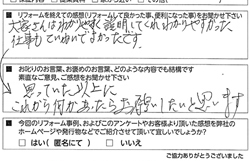 ■リフォームを終えての感想(リフォームして良かった事、便利になった事)をお聞かせ下さい
大塚さんはわかりやすく説明してくれわかりやすかった
仕事もていねいでよかったです。
■お叱りのお言葉、お褒めのお言葉、どのような内容でも結構です
素直なご意見、ご感想をお聞かせ下さい
思っていた以上に
これから何かあったらお願いしたいと思います
■今回のリフォーム事例、およびこのアンケートやお客様より頂いた感想を弊社の
ホームページや発行物などでご紹介させて頂いて宜しいでしょうか?
□はい(匿名にて) □いいえ
ご協力ありがとうございました